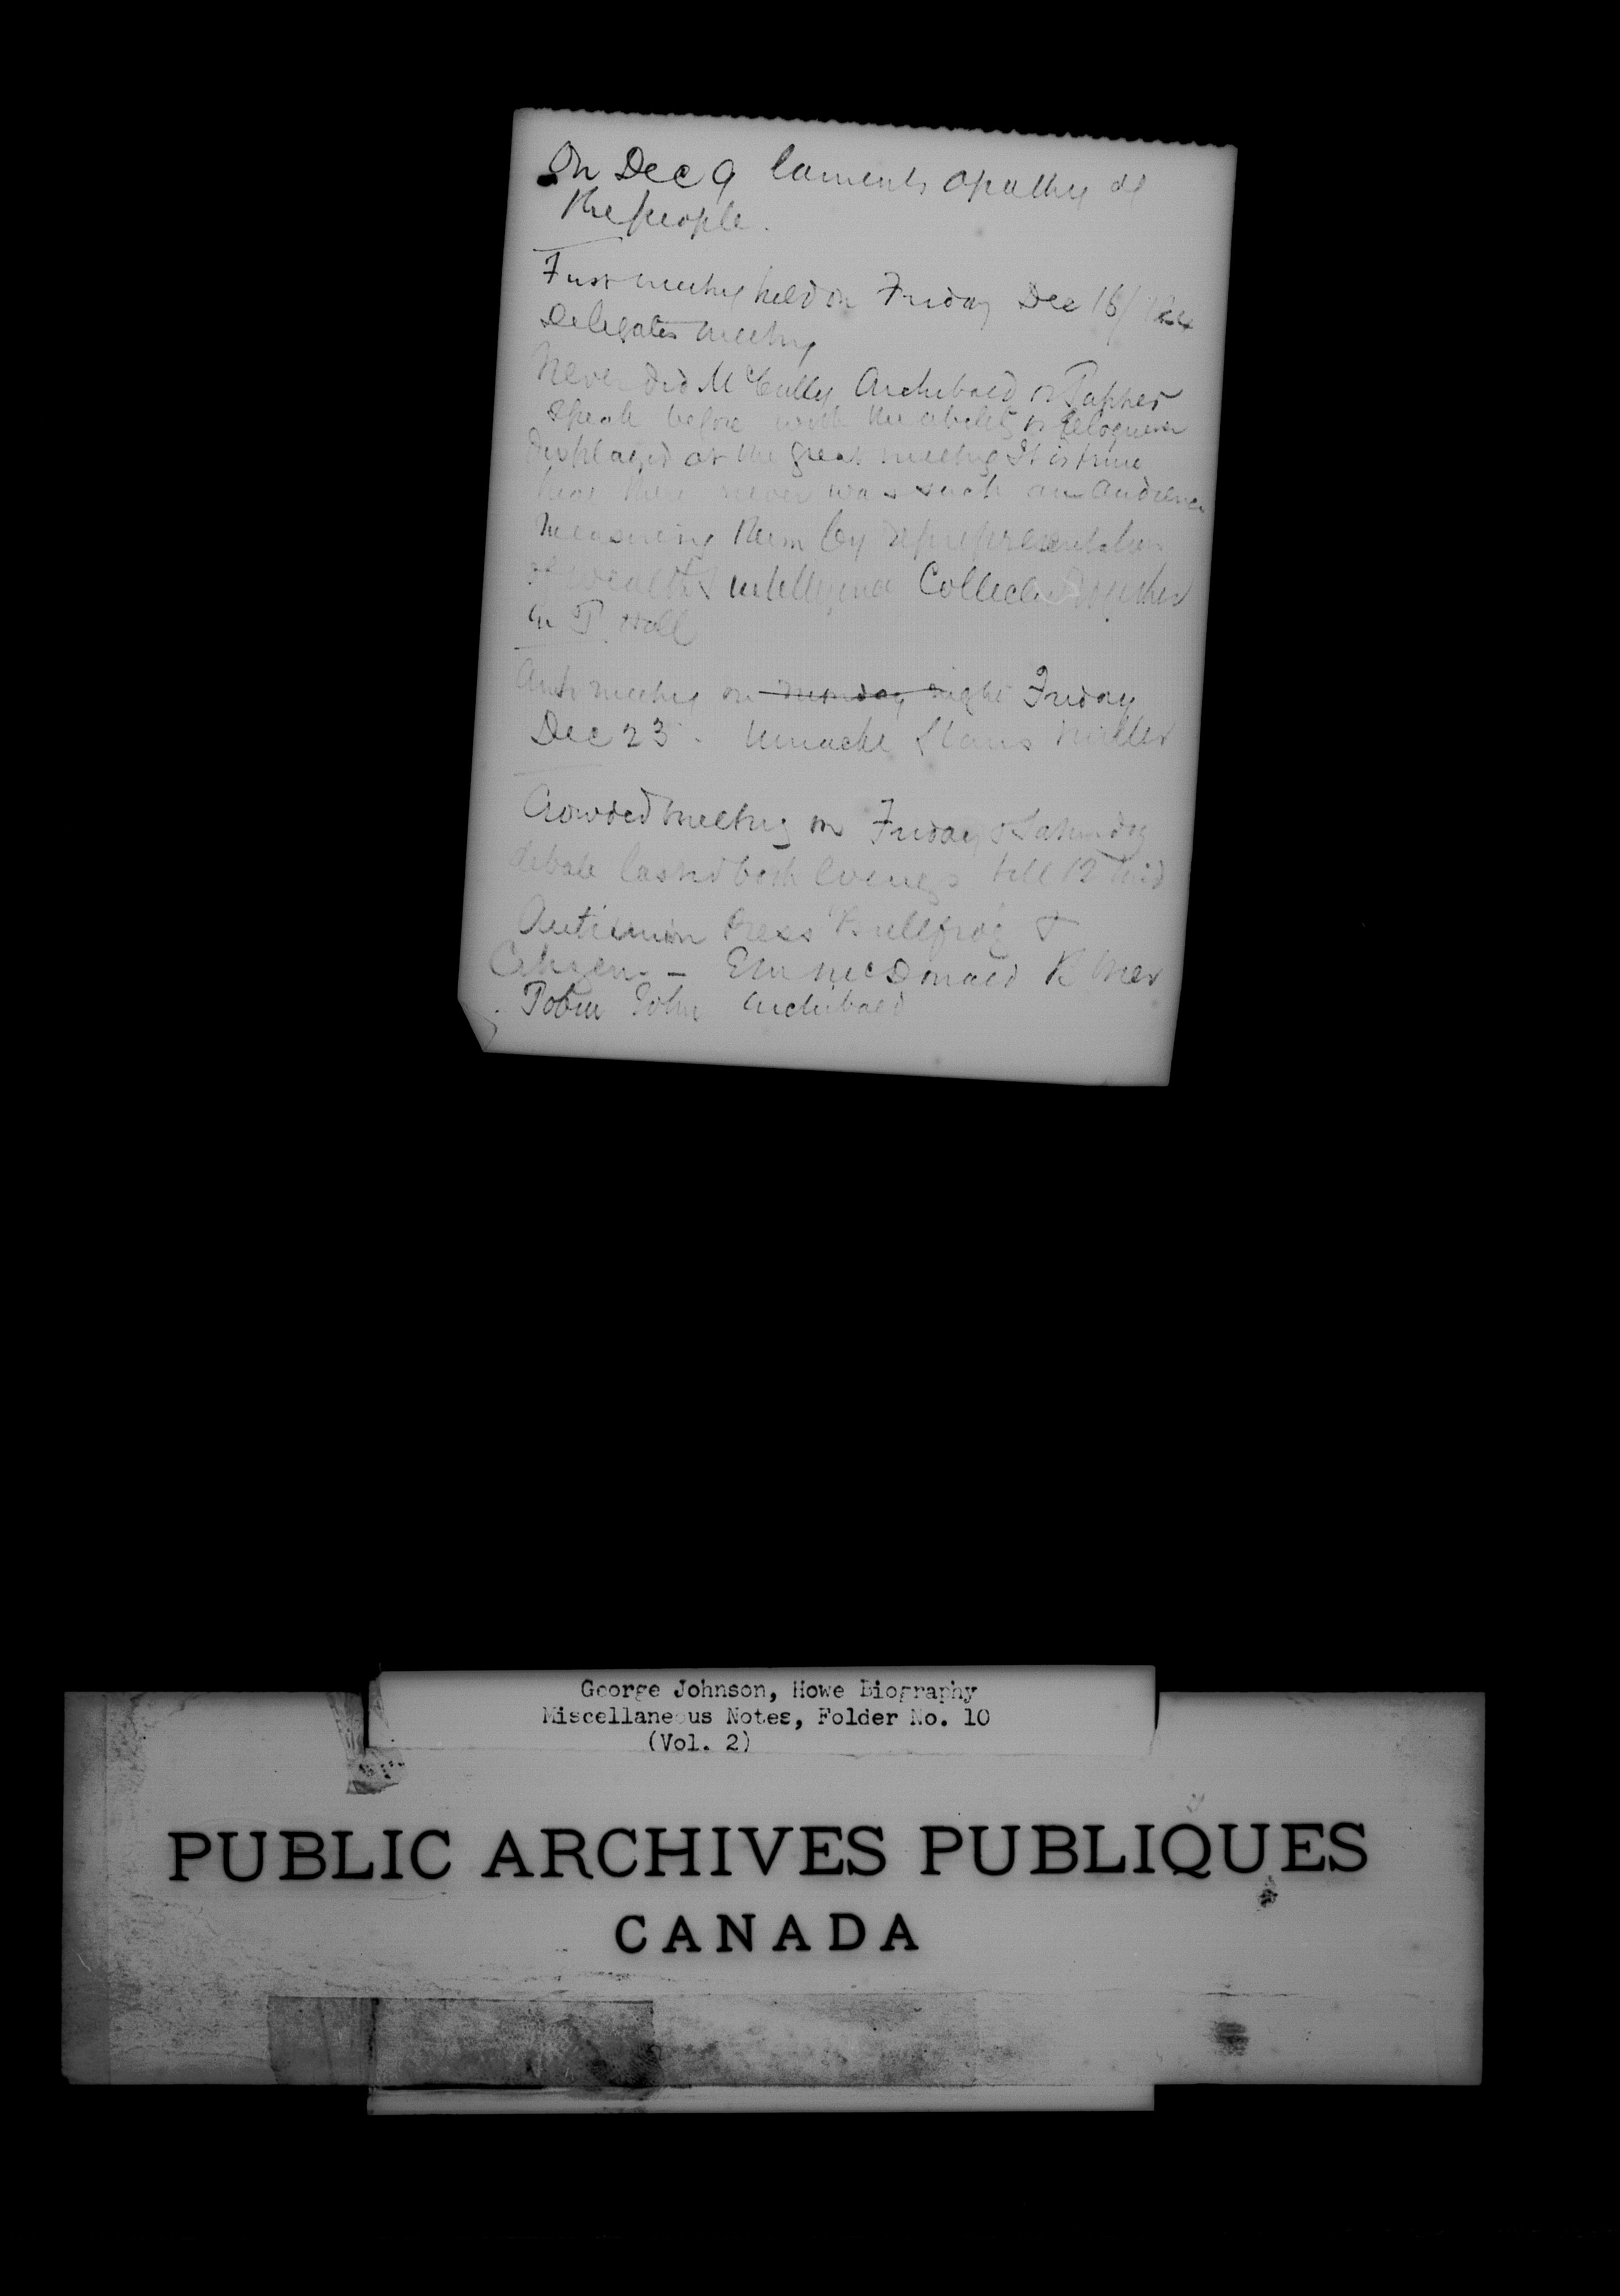 On Dec 9 laments apathy of
the people.
First meeting held on Friday Dec 16/
Delegates meeting
Never did McCully Archibald or Tupper
speak before with the ability or eloquence
displayed at the great meeting It is true
there never was such an audience
measuring them by representation
of wealth & intelligence Collected together
in T. Hall
Anti meeting on Monday night Friday
Dec 23 - Miller
Crowded meeting on Friday & Saturday
debate lasted both evengs till 12 mid
Antiunion press Bullfrog &
Citizen - McDonald
Tobin John Archibald
George Johnson, Howe Biography
Miscellaneous Notes, Folder No. 10
(Vol. 2)
PUBLIC ARCHIVES PUBLIQUES
CANADA